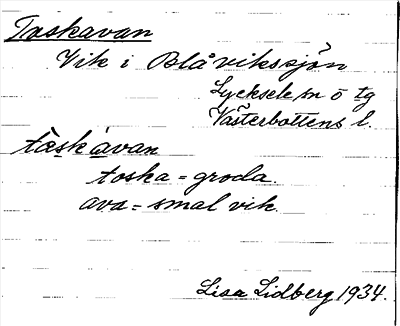 Taskavan
Vik i Blåvikssjön
Lycksele sn o tg
Västerbottens l.
tàskàvan
toska = groda.
ava = smal vik.
Lisa Lidberg 1934.